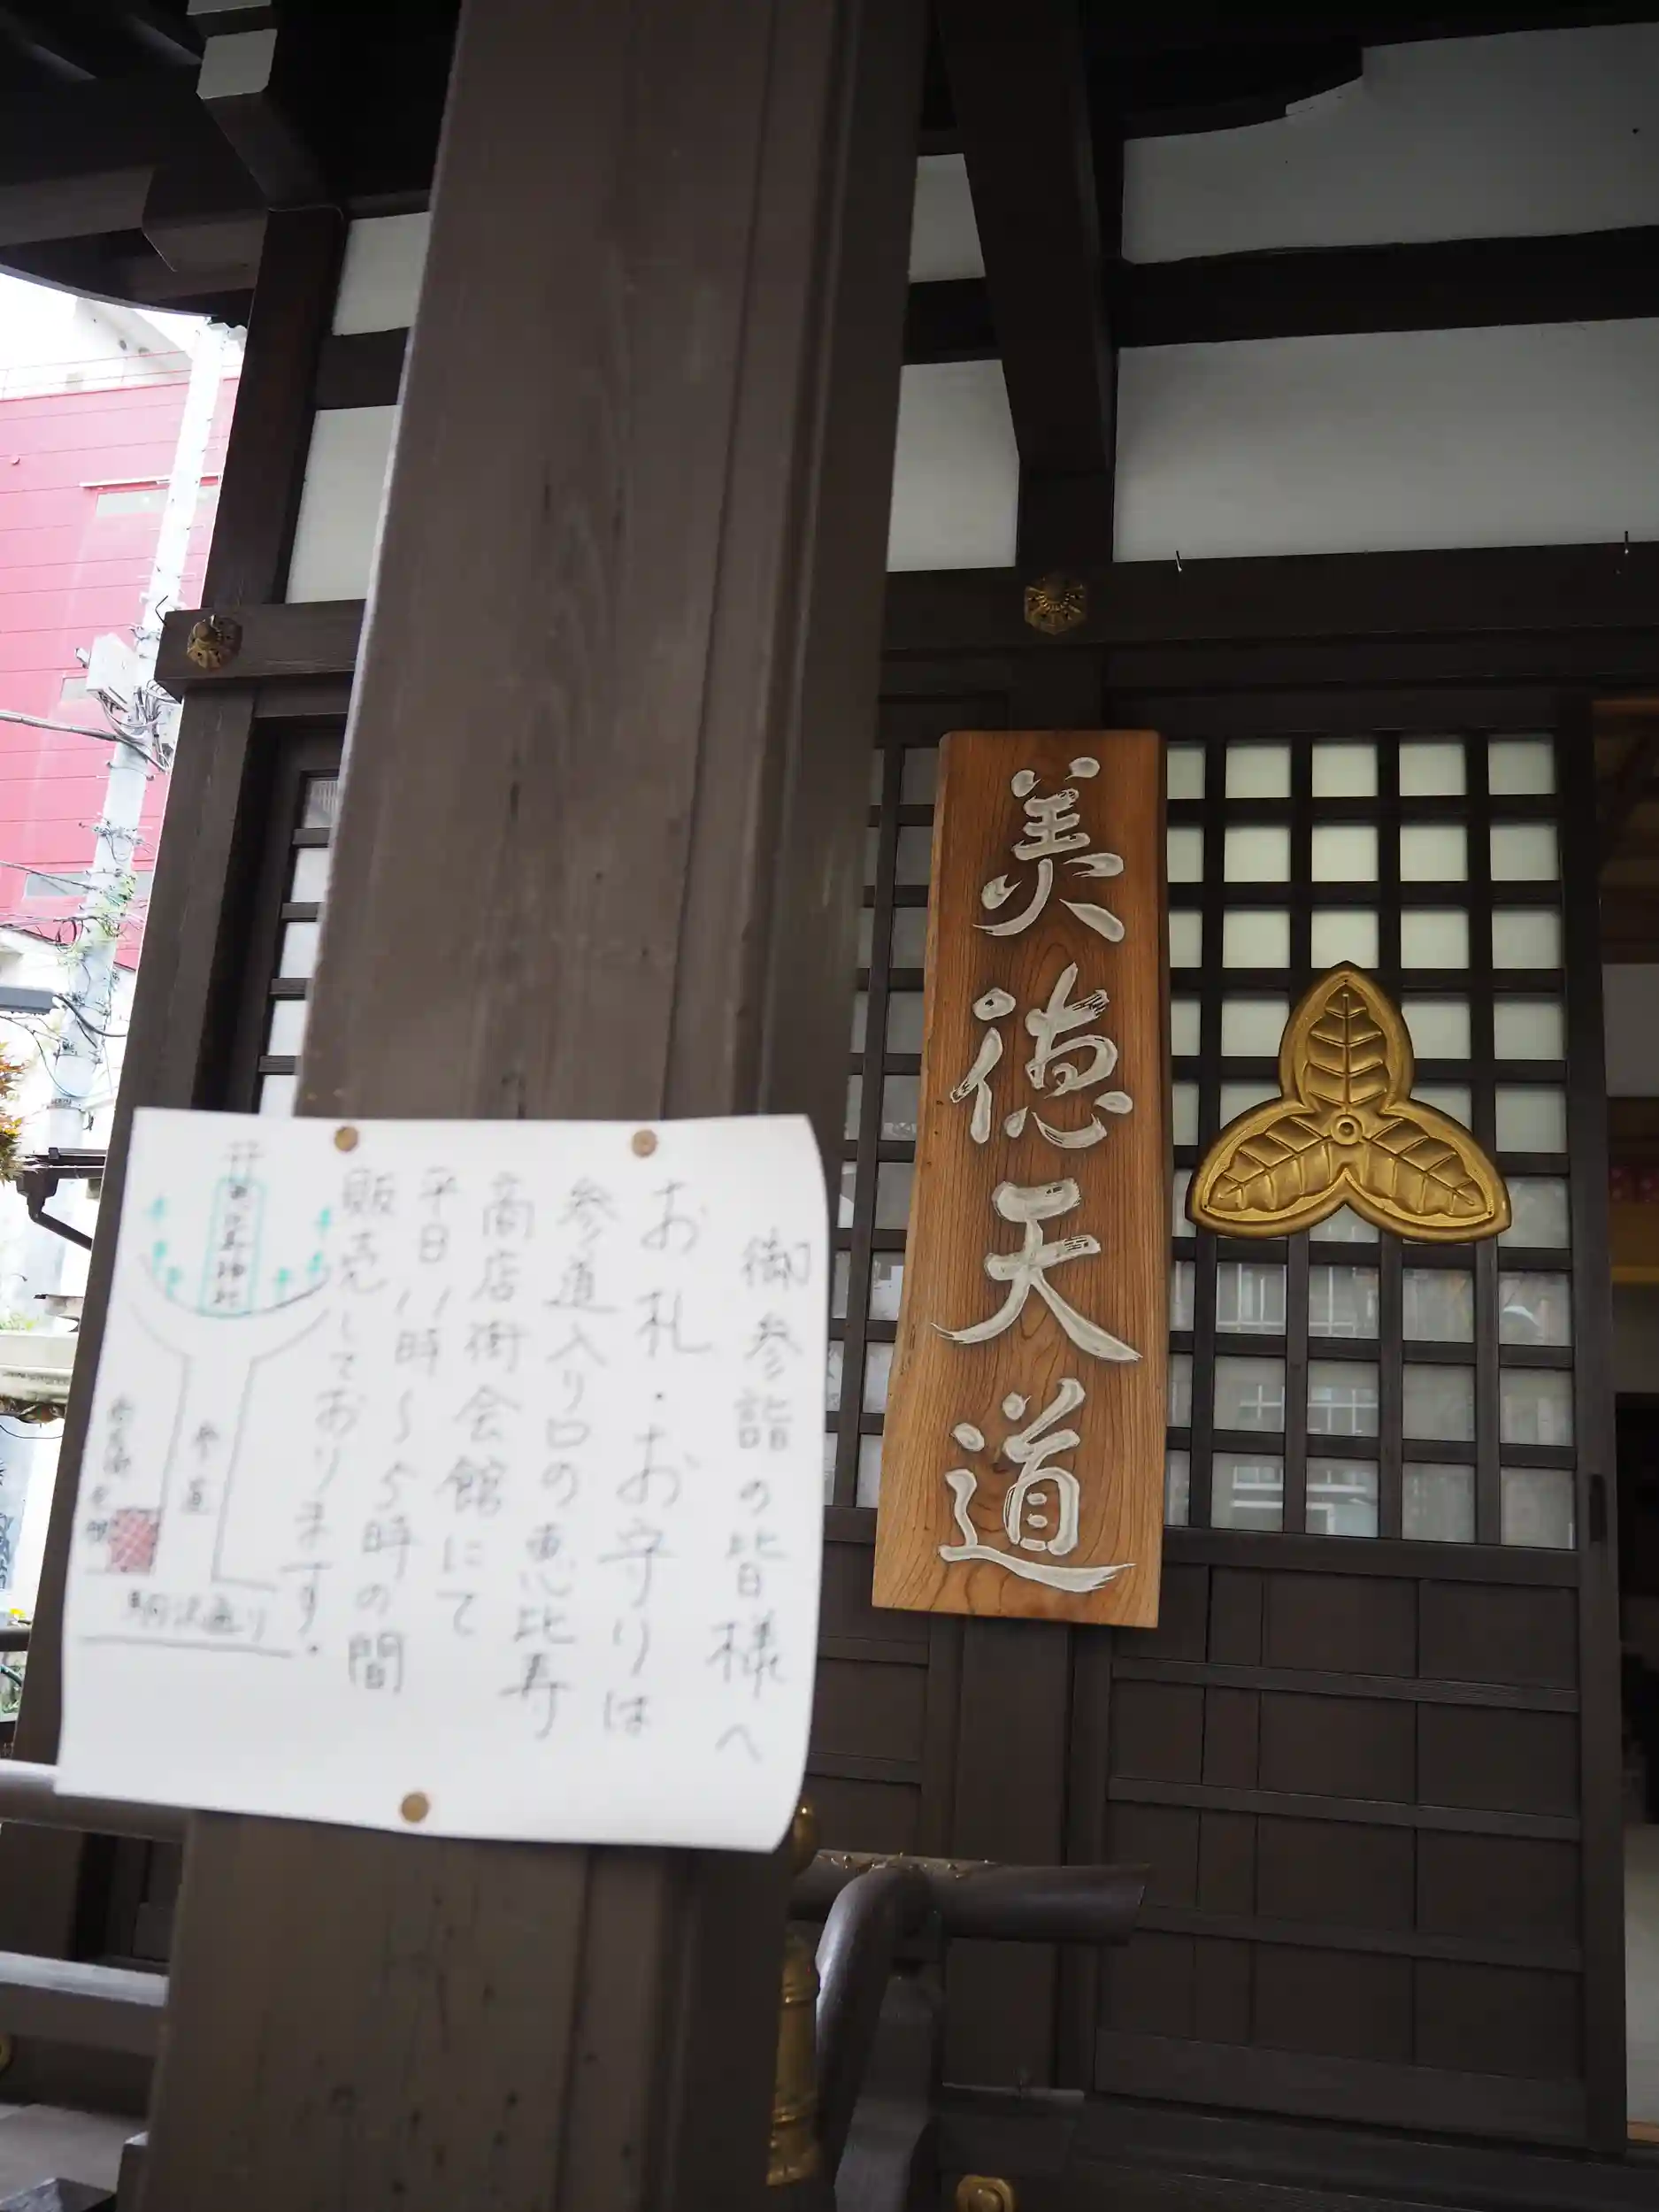 御参詣の皆様へ
お札・お守りは
参道入り口の恵比寿
商店街会館にて
平日11時～5時の間
販売しております.
参道
駒沢通り
美徳天道